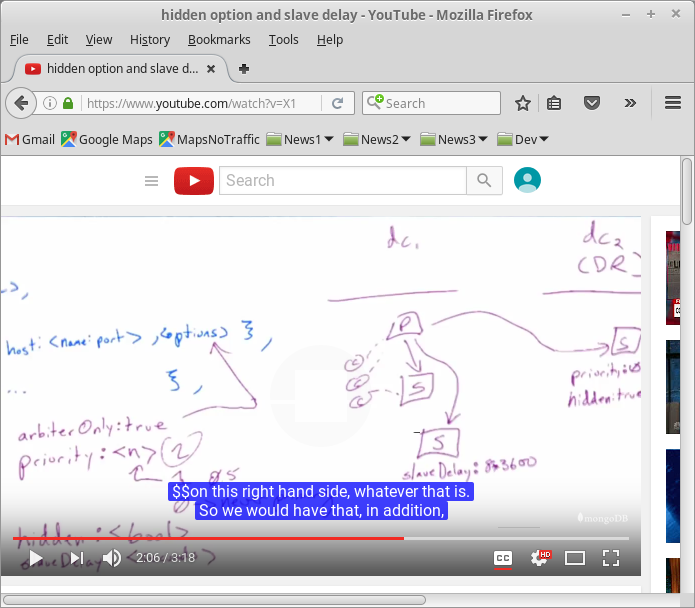 hidden option and slave delay - YouTube - Mozilla Firefox
File Edit View History Bookmarks Tools Help
hidden option and slave d...
https://www.youtube.com/watch?v=X1
Search
Gmail Google Maps MapsNoTraffic News1 News2 News3 Dev
Search
dc1
dc2
(DR)
host: <name:port>, <options> },
P
S
S
c
c
c
priority:
...
},
S
hidden:true
arbiterOnly:true
priority:<n>
S
slaveDelay: 8*3600
$$on this right hand side, whatever that is.
So we would have that, in addition,
mongoDB
hidden: <bool>
slaveDelay
2:06 / 3:18
CC
HD